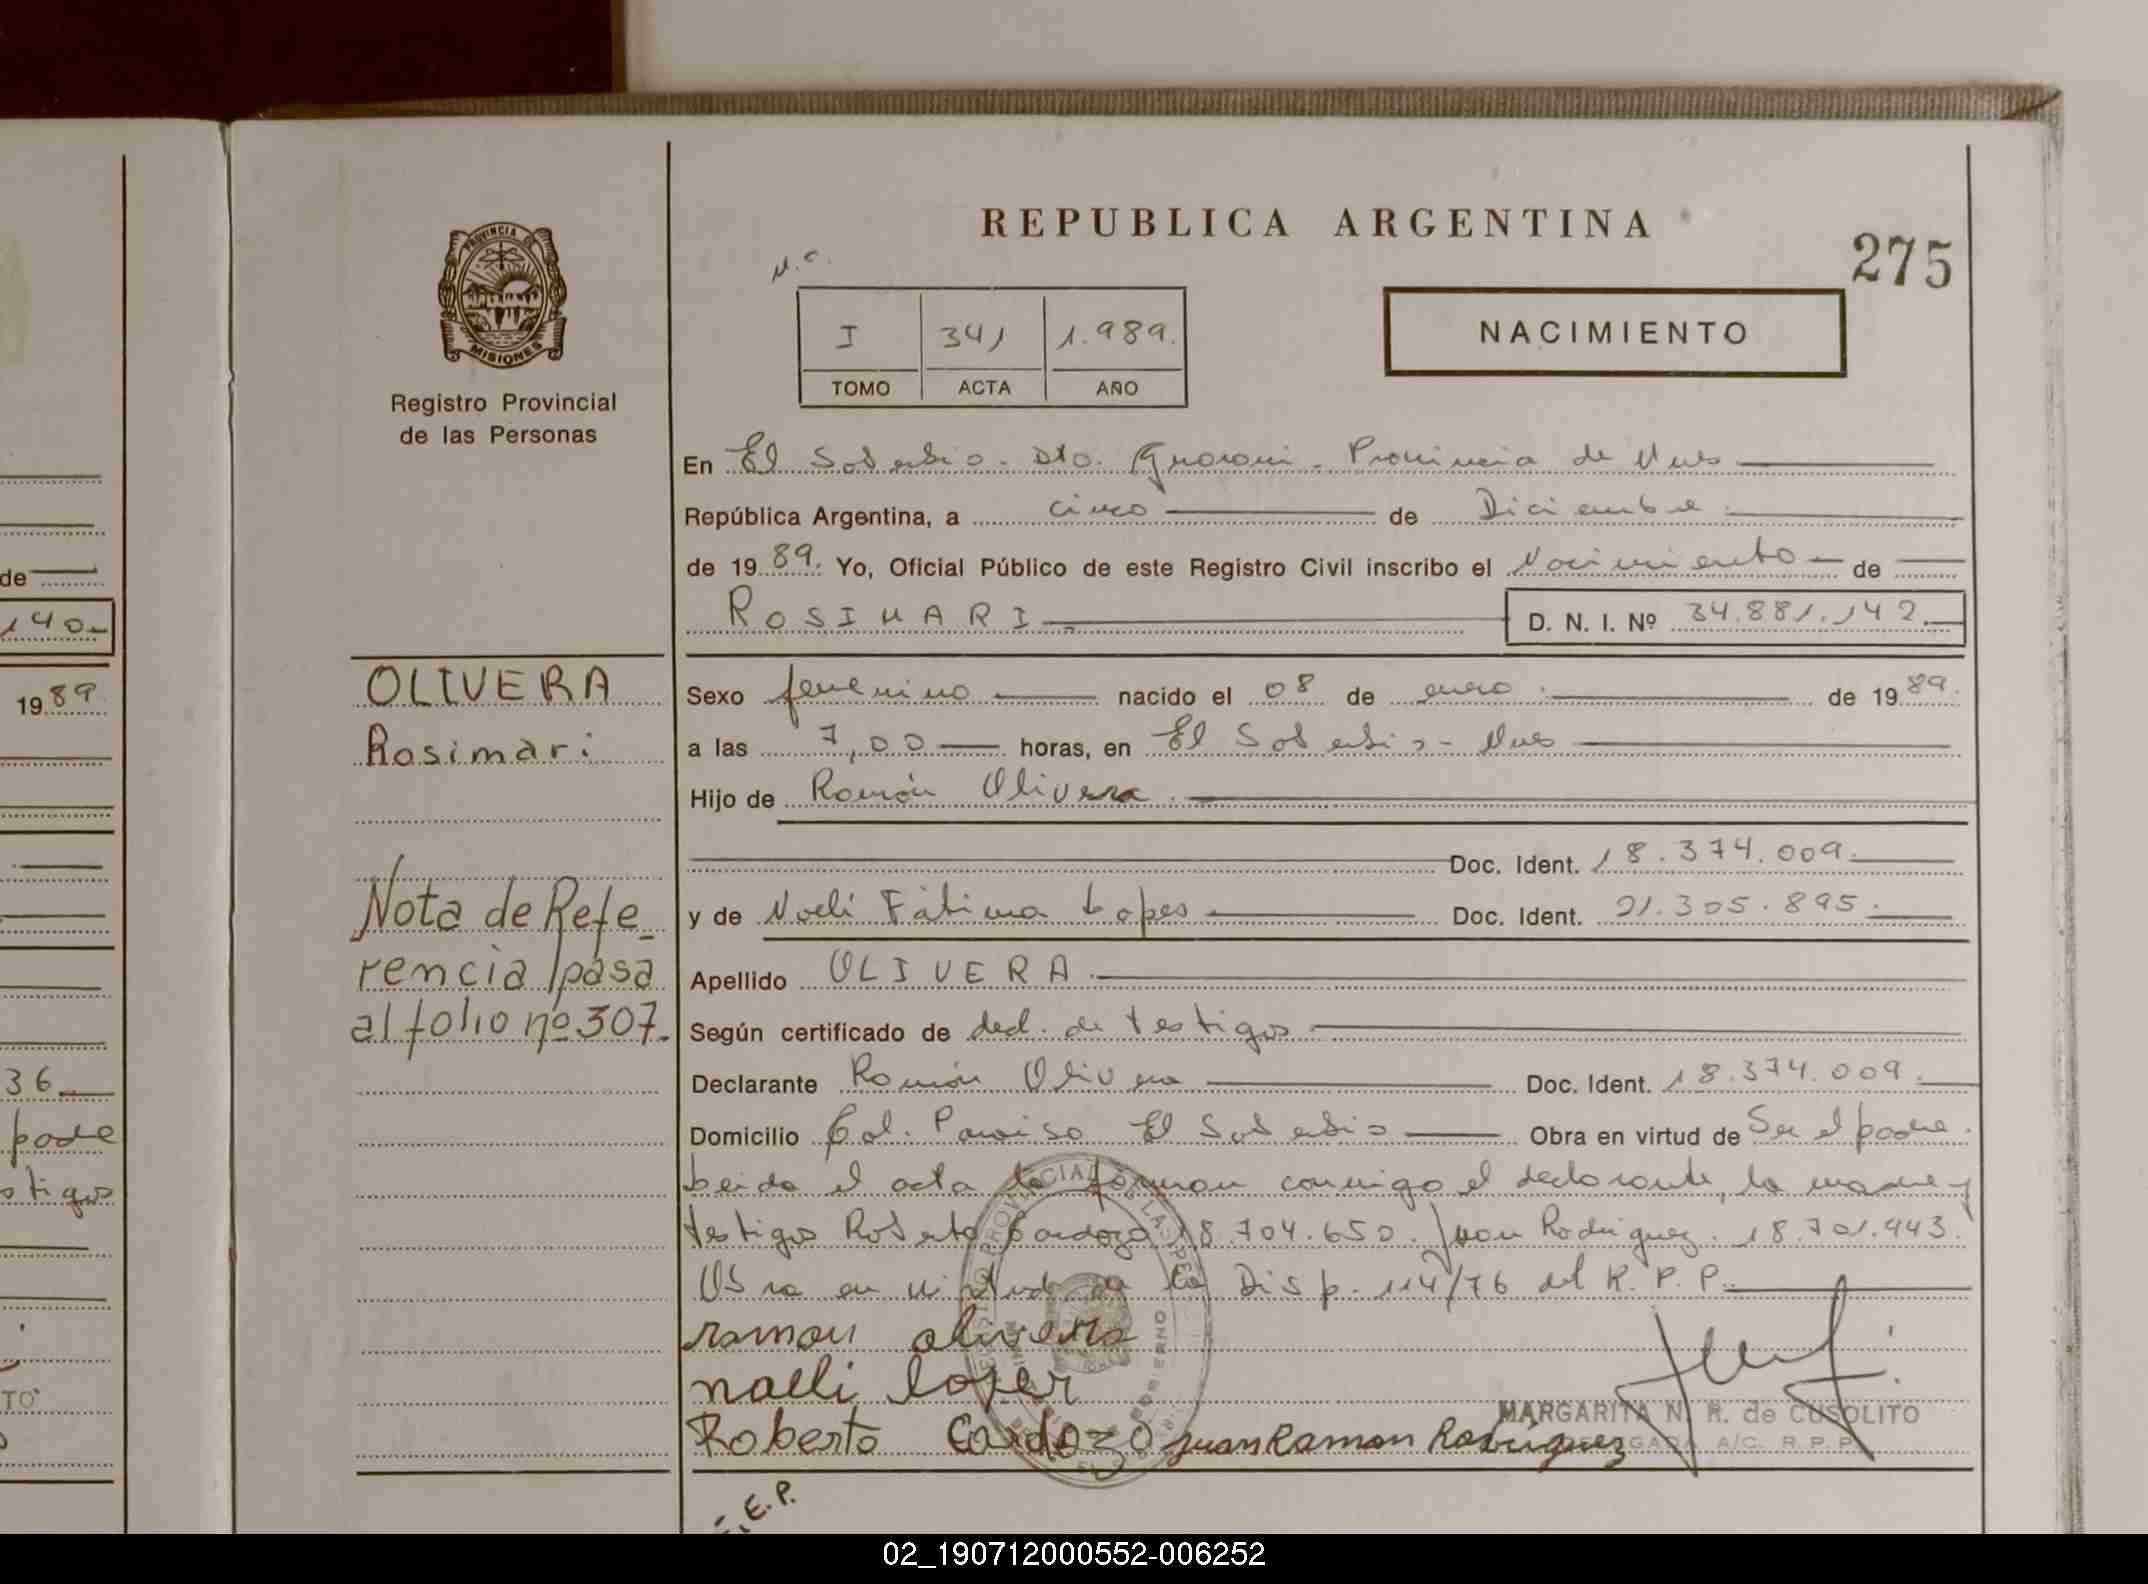 REPUBLICA ARGENTINA
275
PROVINCIA DE
MISIONES
Registro Provincial
de las Personas
I 341 1.989.
TOMO ACTA AÑO
NACIMIENTO
En El Soberbio. Dto. Guarani. Provincia de Mnes
República Argentina, a cinco de Diciembre
de 1989. Yo, Oficial Público de este Registro Civil inscribo el Nacimiento de
ROSIMARI D. N. I. Nº 34.881.142
OLIVERA
Rosimari
Sexo femenino nacido el 08 de enero de 1989.
a las 7,00 horas, en El Soberbio - Mnes
Hijo de Ramón Olivera.
Doc. Ident. 18.374.009
y de Noelí Fátima Lopes Doc. Ident. 21.305.895.
Nota de Refe_
rencia pasa
al folio nº 307.
Apellido OLIVERA.
Según certificado de decl. de testigos
Declarante Ramón Olivera Doc. Ident. 18.374.009.
Domicilio Col. Paraiso El Soberbio Obra en virtud de Ser el padre.
Leida el acta la firman conmigo el declarante, la madre y
testigos Roberto Cardozo 18.704.650. Juan Rodriguez. 18.701.943.
Obra en virtud de la Disp. 114/76 del R. P. P.
ramon olivera
naeli loper
Roberto Cardozo Juan Ramon Rodriguez
MARGARITA N. R. de CUSOLITO
DELEGADA A/C. R.P.P.
E. P.
de
140
1989
36
padre
testigos
TO
02_190712000552-006252